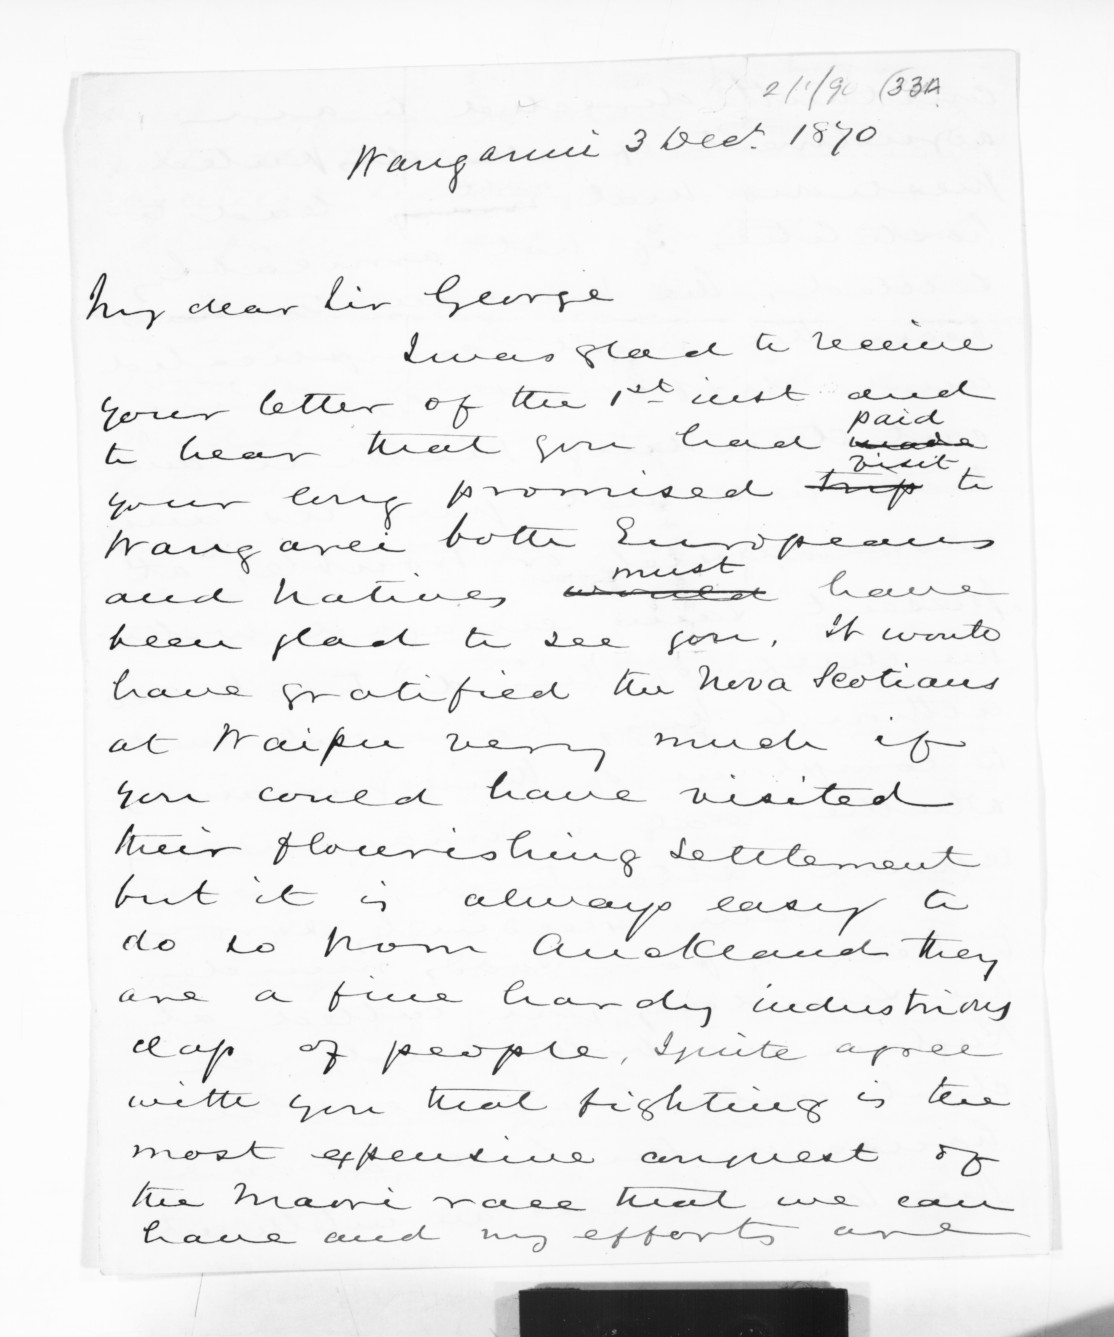 2/1/90 (33A
Wanganui 3 Decr. 1870
My dear Sir George
I was glad to receive
your letter of the 1st inst and
to hear that you had made paid
your long promised trip visit to
Wangarei both Europeans
and Natives would must have
been glad to see you. It would
have gratified the Nova Scotians
at Waipu very much if
you could have visited
their flourishing settlement
but it is always easy to
do so from Auckland they
are a fine hardy industrious
class of people, I quite agree
with you that fighting is the
most expensive conquest of
the Maori race that we can
have and my efforts are